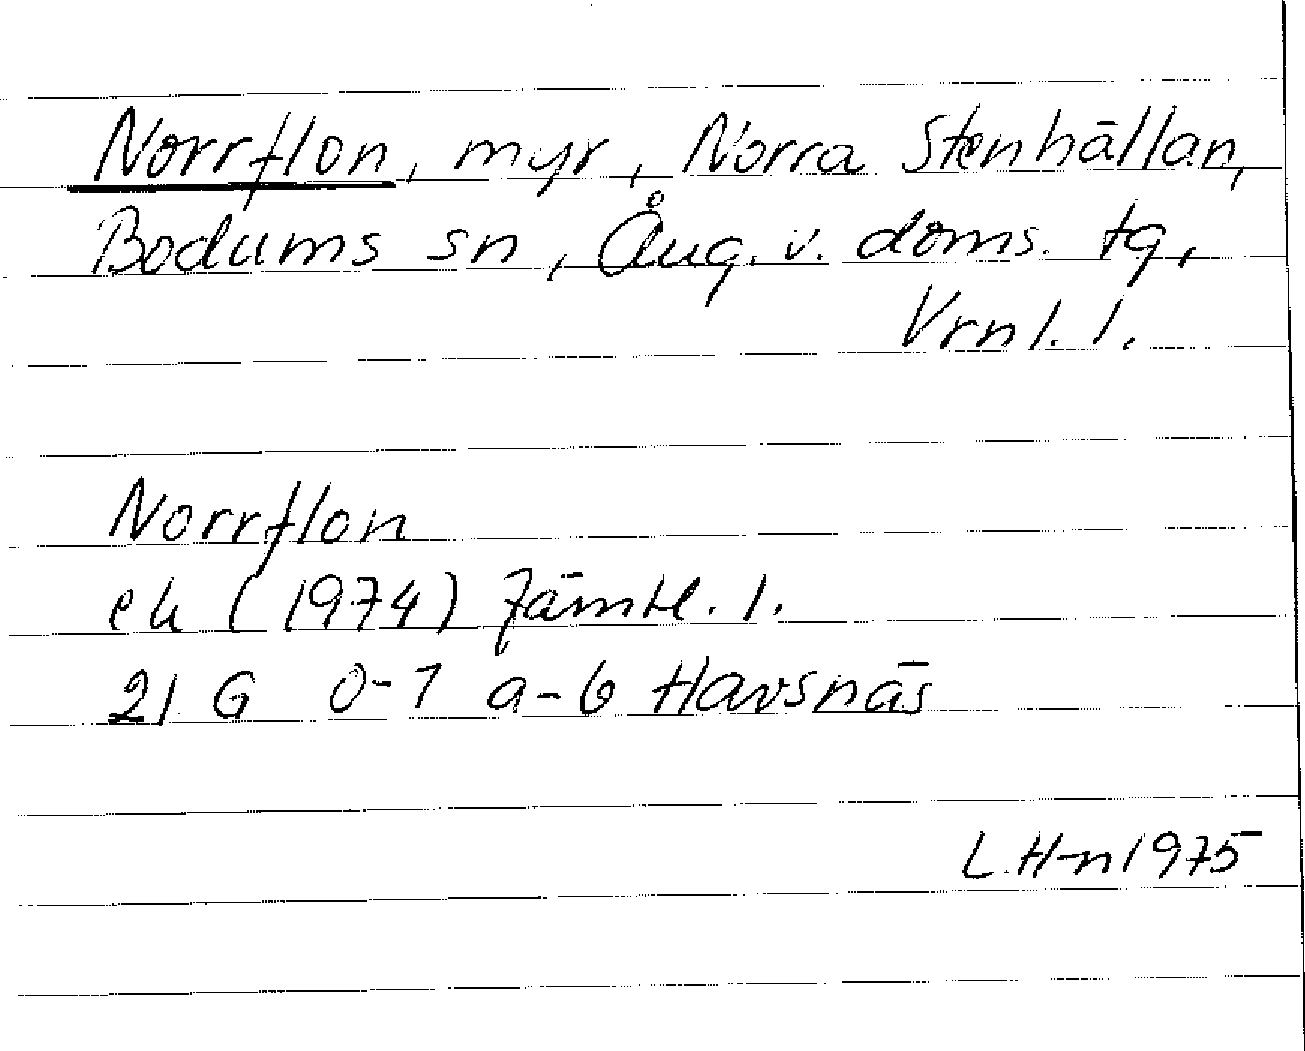 Norrflon, myr, Norra Stenhällan,
Bodums sn, Ång. v. doms. tg,
Vrnl. l.
Norrflon
ek (1974) Jämtl. l.
21 G 0-1 a-b Havsnäs
L. H-n 1975